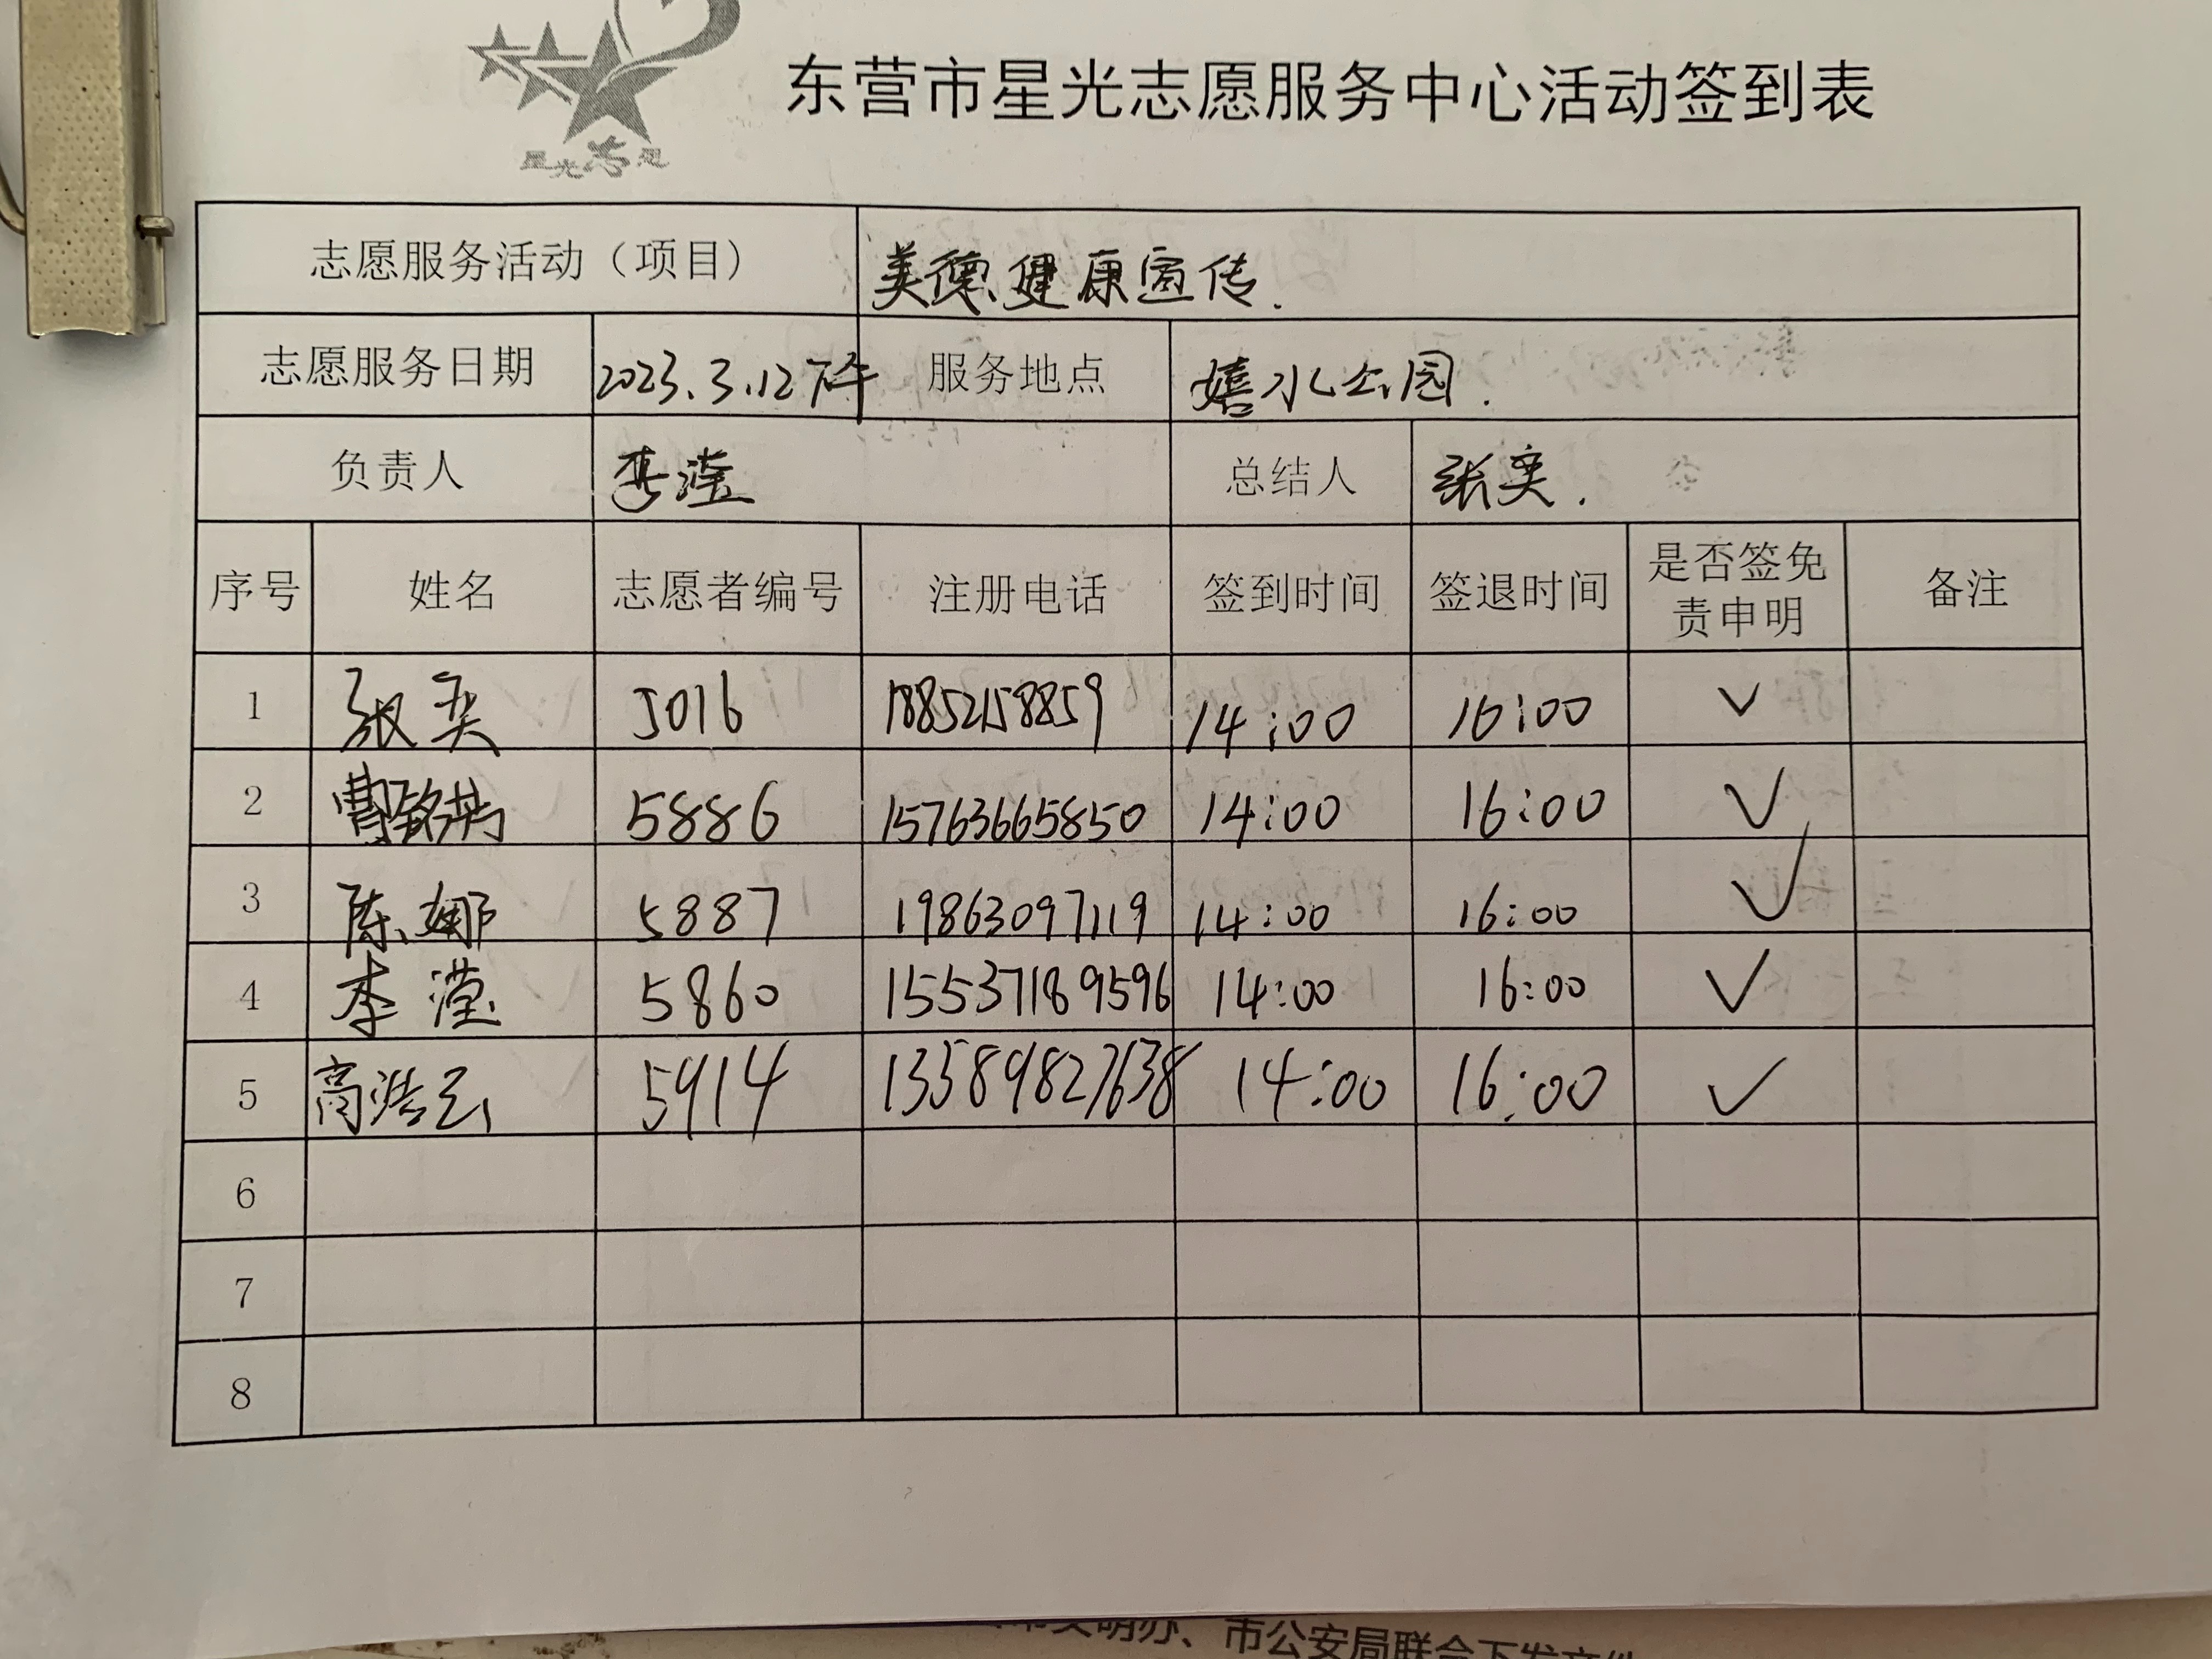 星光志愿
东营市星光志愿服务中心活动签到表
志愿服务活动（项目） 美德健康宣传.
志愿服务日期 2023.3.12下午 服务地点 嬉水公园.
负责人 李滢 总结人 张奕.
序号 姓名 志愿者编号 注册电话 签到时间 签退时间 是否签免责申明 备注
1 张奕 5016 18852158859 14:00 16:00 ✓
2 曹铭芮 5886 15763665850 14:00 16:00 ✓
3 陈娜 5887 19863097119 14:00 16:00 ✓
4 李滢 5860 15537189596 14:00 16:00 ✓
5 高浩云 5914 13589827638 14:00 16:00 ✓
6
7
8
市文明办、市公安局联合下发文件